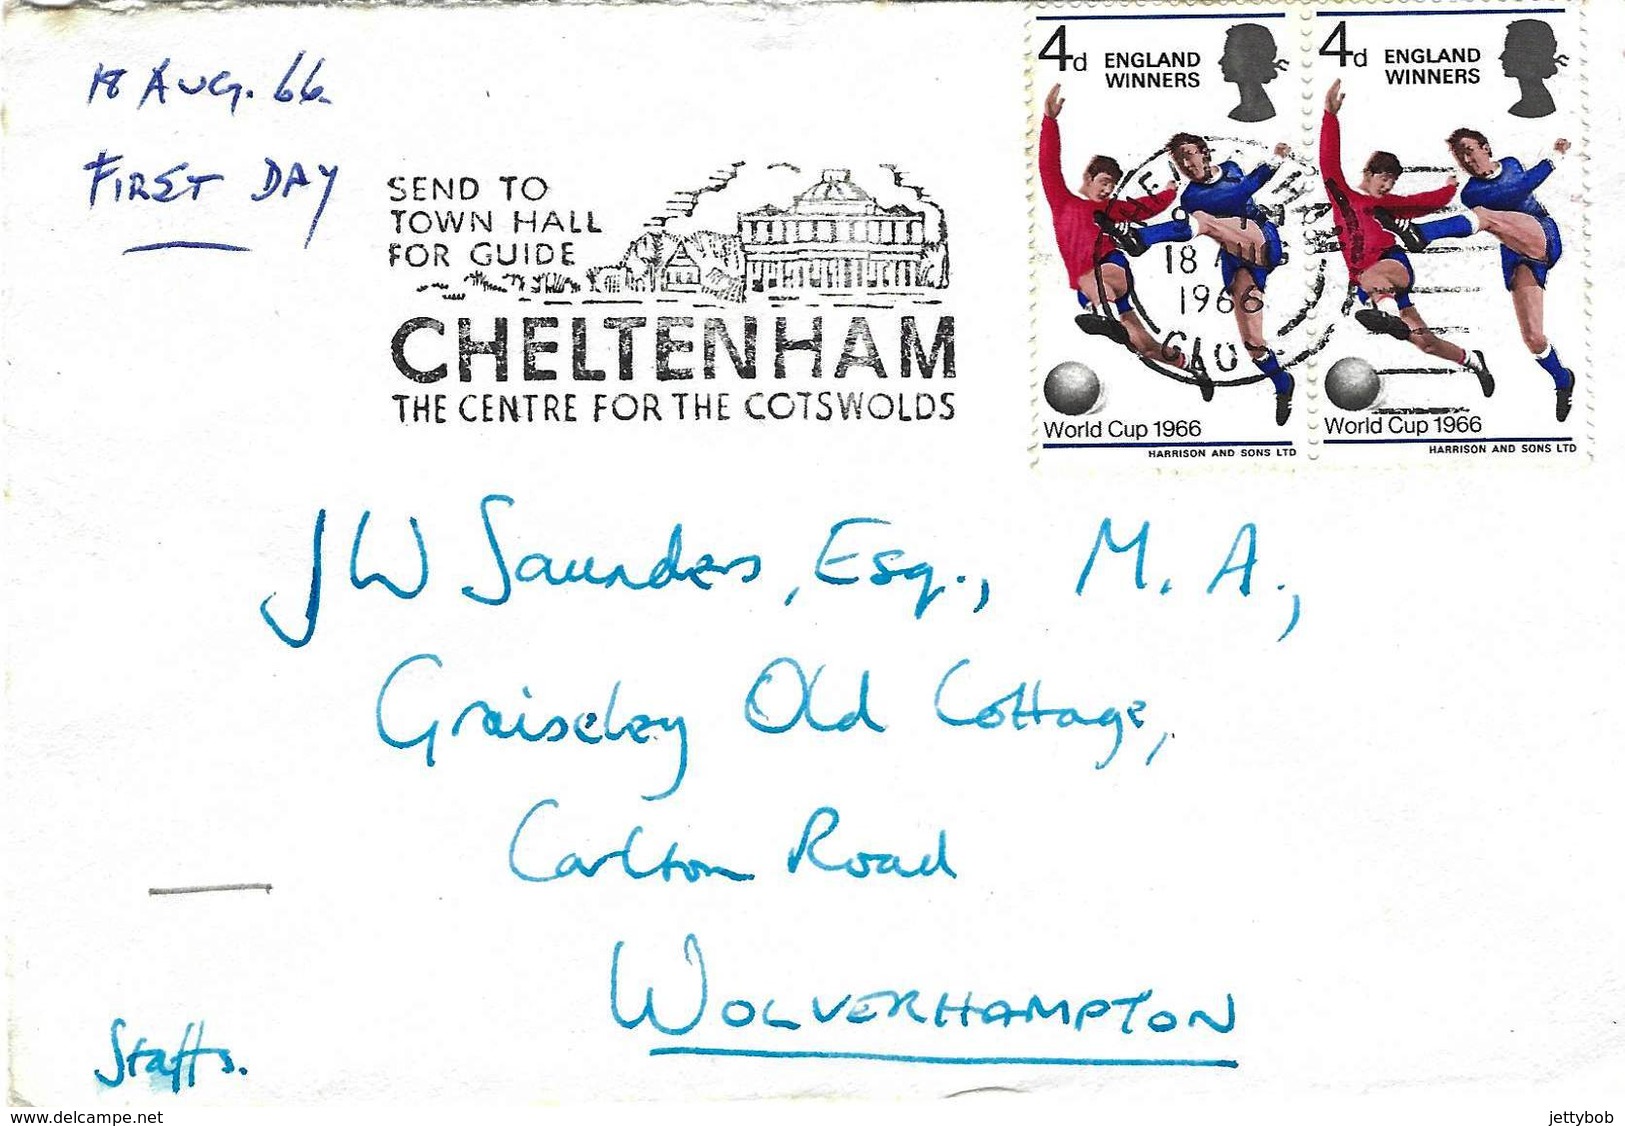 18 AUG. 66.
FIRST DAY
SEND TO
TOWN HALL
FOR GUIDE
CHELTENHAM
THE CENTRE FOR THE COTSWOLDS
4d ENGLAND
WINNERS
World Cup 1966
HARRISON AND SONS LTD
4d ENGLAND
WINNERS
World Cup 1966
HARRISON AND SONS LTD
18 AUG
1966
J W Saunders, Esq., M. A.,
Graiseley Old Cottage,
Carlton Road
WOLVERHAMPTON
Staffs.
www.delcampe.net
jettybob